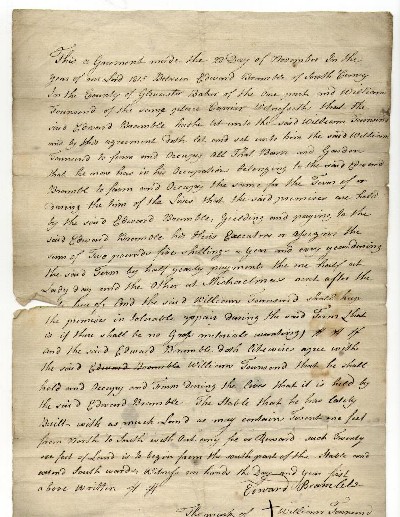 This a Greement made the 22 Day of November In the
Year of our Lord 1815 Between Edward Bramble of South Cerney
In the County of Gloucester Baker of the One part and William
Townsend of the same place Carrier Witnesseth that the
said Edward Bramble hathe let unto the said William Townsend
and by this agreement doth let and set unto him the said William
Townsend to farm and Occupy All That Barn and Garden
that he now has in his Occupation belonging to the said Edward
Bramble to farm and Occupy the same for the Term of or
During the time of the Lives that the said premises are held
by the said Edward Bramble, Yielding and paying to the
said Edward Bramble his Heirs Executors or Assigns the
sum of Two pounds five shillings a Year and every year during
the said Term by half yearly payments the one half at
Lady day and the Other at Michaelmas next after the
hereof And the said William Townsend shall keep
the premises in tolerable repair during the said Term that
is if there shall be no Gross materials wanting
and the said Edward Bramble doth likewise agree with
the said Edward Bramble William Townsend that he shall
hold and Occupy and Farm during the Lives that it is held by
the said Edward Bramble The Stable that he has lately
Built with as much Land as may contain Twenty one feet
from North to South with Out any fee or Reward such Twenty
one feet of Land is to begin from the south part of the Stable and
extend South ward Witness our hands the Day and year first
above Written
Edward Bramble
The mark of + William Townsend